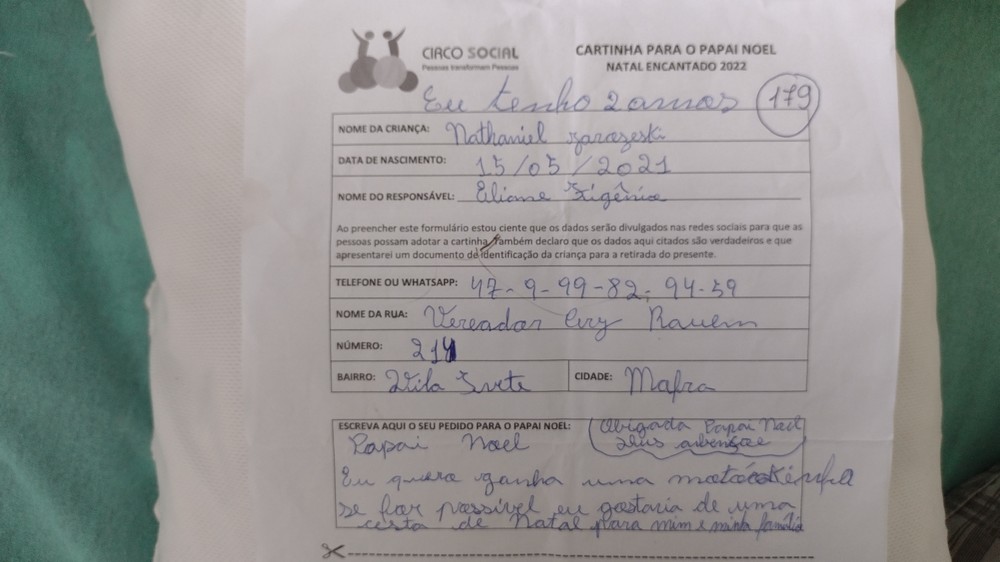 CIRCO SOCIAL
Pessoas transformam Pessoas
CARTINHA PARA O PAPAI NOEL
NATAL ENCANTADO 2022
Eu tenho 2 anos
179
NOME DA CRIANÇA: Nathaniel
DATA DE NASCIMENTO: 15/05/2021
NOME DO RESPONSÁVEL: Eliane
Ao preencher este formulário estou ciente que os dados serão divulgados nas redes sociais para que as
pessoas possam adotar a cartinha. Também declaro que os dados aqui citados são verdadeiros e que
apresentarei um documento de identificação da criança para a retirada do presente.
TELEFONE OU WHATSAPP: 47-9-99-82-94-59
NOME DA RUA: Vereador Ery Rauem
NÚMERO: 214
BAIRRO: Vila Ivete
CIDADE: Mafra
ESCREVA AQUI O SEU PEDIDO PARA O PAPAI NOEL:
Obrigada Papai Noel
Deus abençoe
Papai Noel
Eu quero ganha uma
se for possivel eu gostaria de uma
cesta de Natal para mim e minha familia